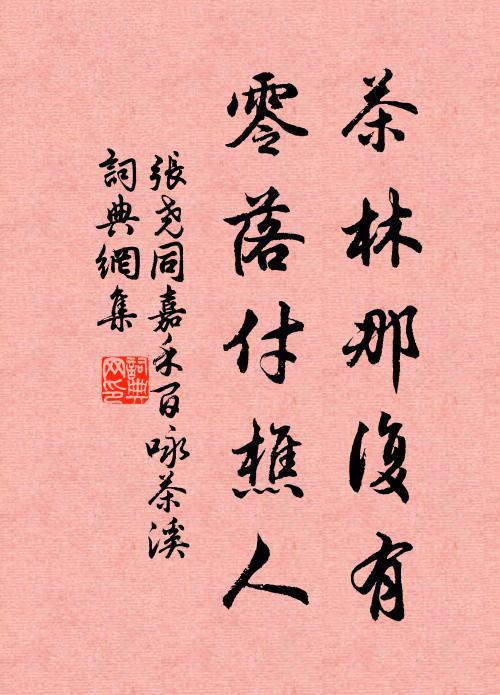 茶林那復有
零落付樵人
張堯同嘉禾百咏茶溪
詞典網集
詞典網印